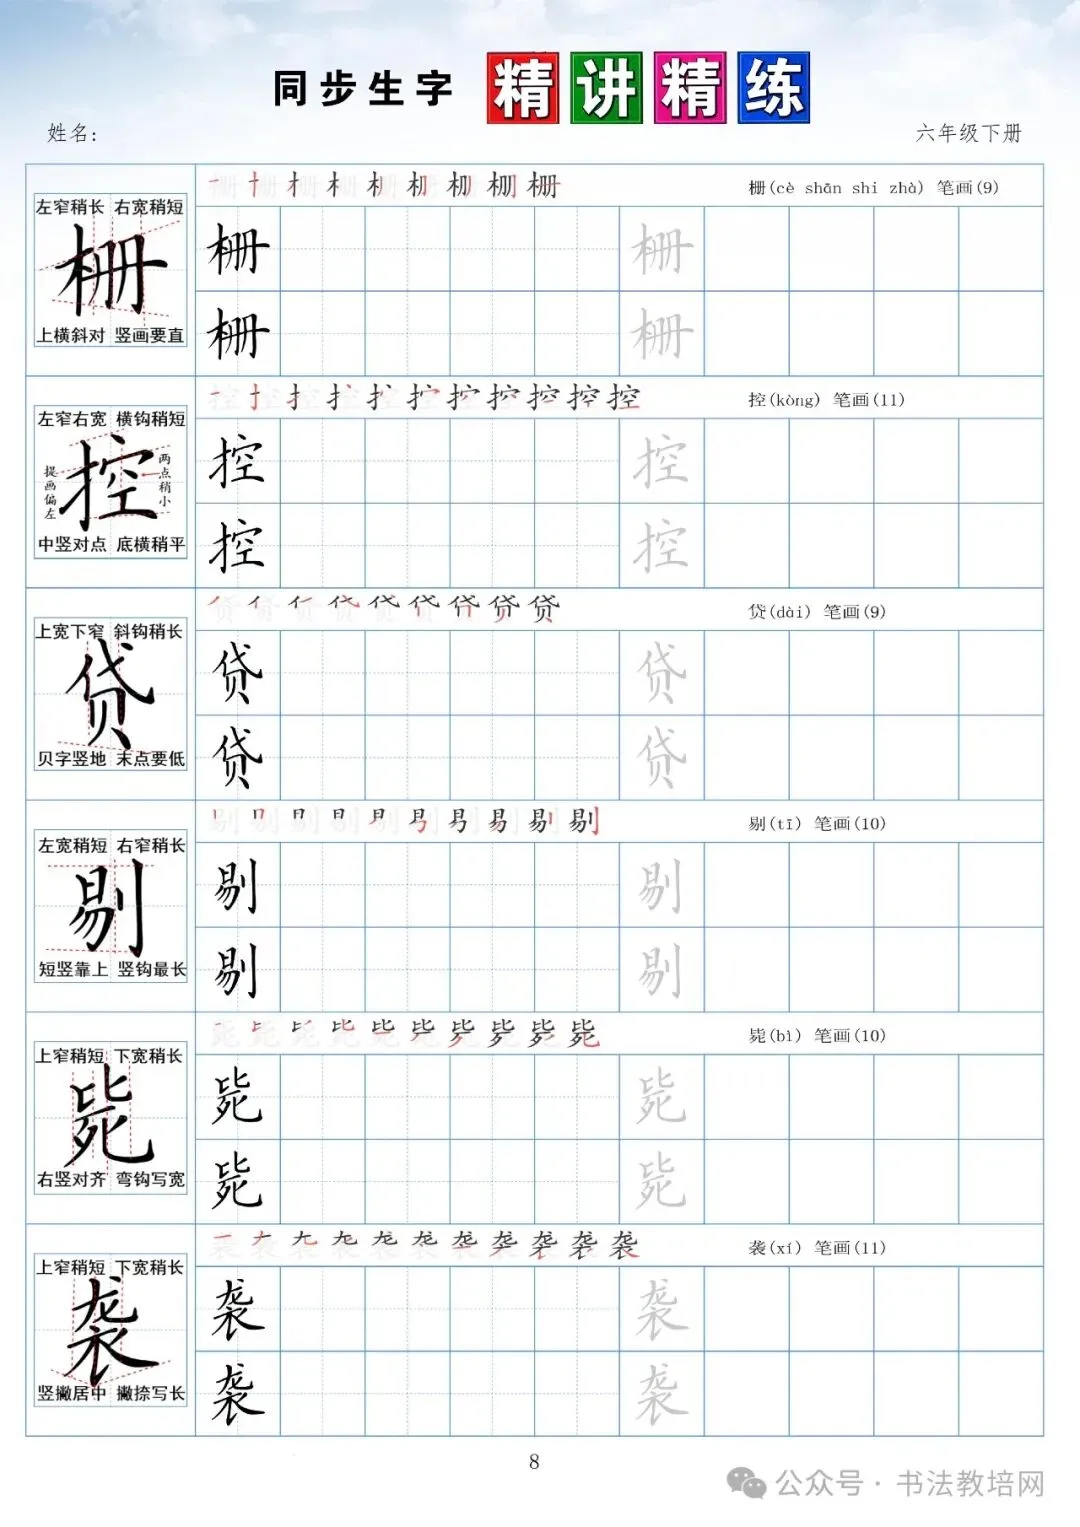 同步生字 精讲精练
姓名:
六年级下册
左窄稍长 右宽稍短
栅
上横斜对 竖画要直
栅(cè shān shi zhà) 笔画(9)
栅 栅
栅 栅
左窄右宽 横钩稍短
提画偏左
控
两点稍小
中竖对点 底横稍平
控(kòng) 笔画(11)
控 控
控 控
上宽下窄 斜钩稍长
贷
贝字竖地 末点要低
贷(dài) 笔画(9)
贷 贷
贷 贷
左宽稍短 右窄稍长
剔
短竖靠上 竖钩最长
剔(tī) 笔画(10)
剔 剔
剔 剔
上窄稍短 下宽稍长
毙
右竖对齐 弯钩写宽
毙(bì) 笔画(10)
毙 毙
毙 毙
上窄稍短 下宽稍长
袭
竖撇居中 撇捺写长
袭(xí) 笔画(11)
袭 袭
袭 袭
8
公众号·书法教培网